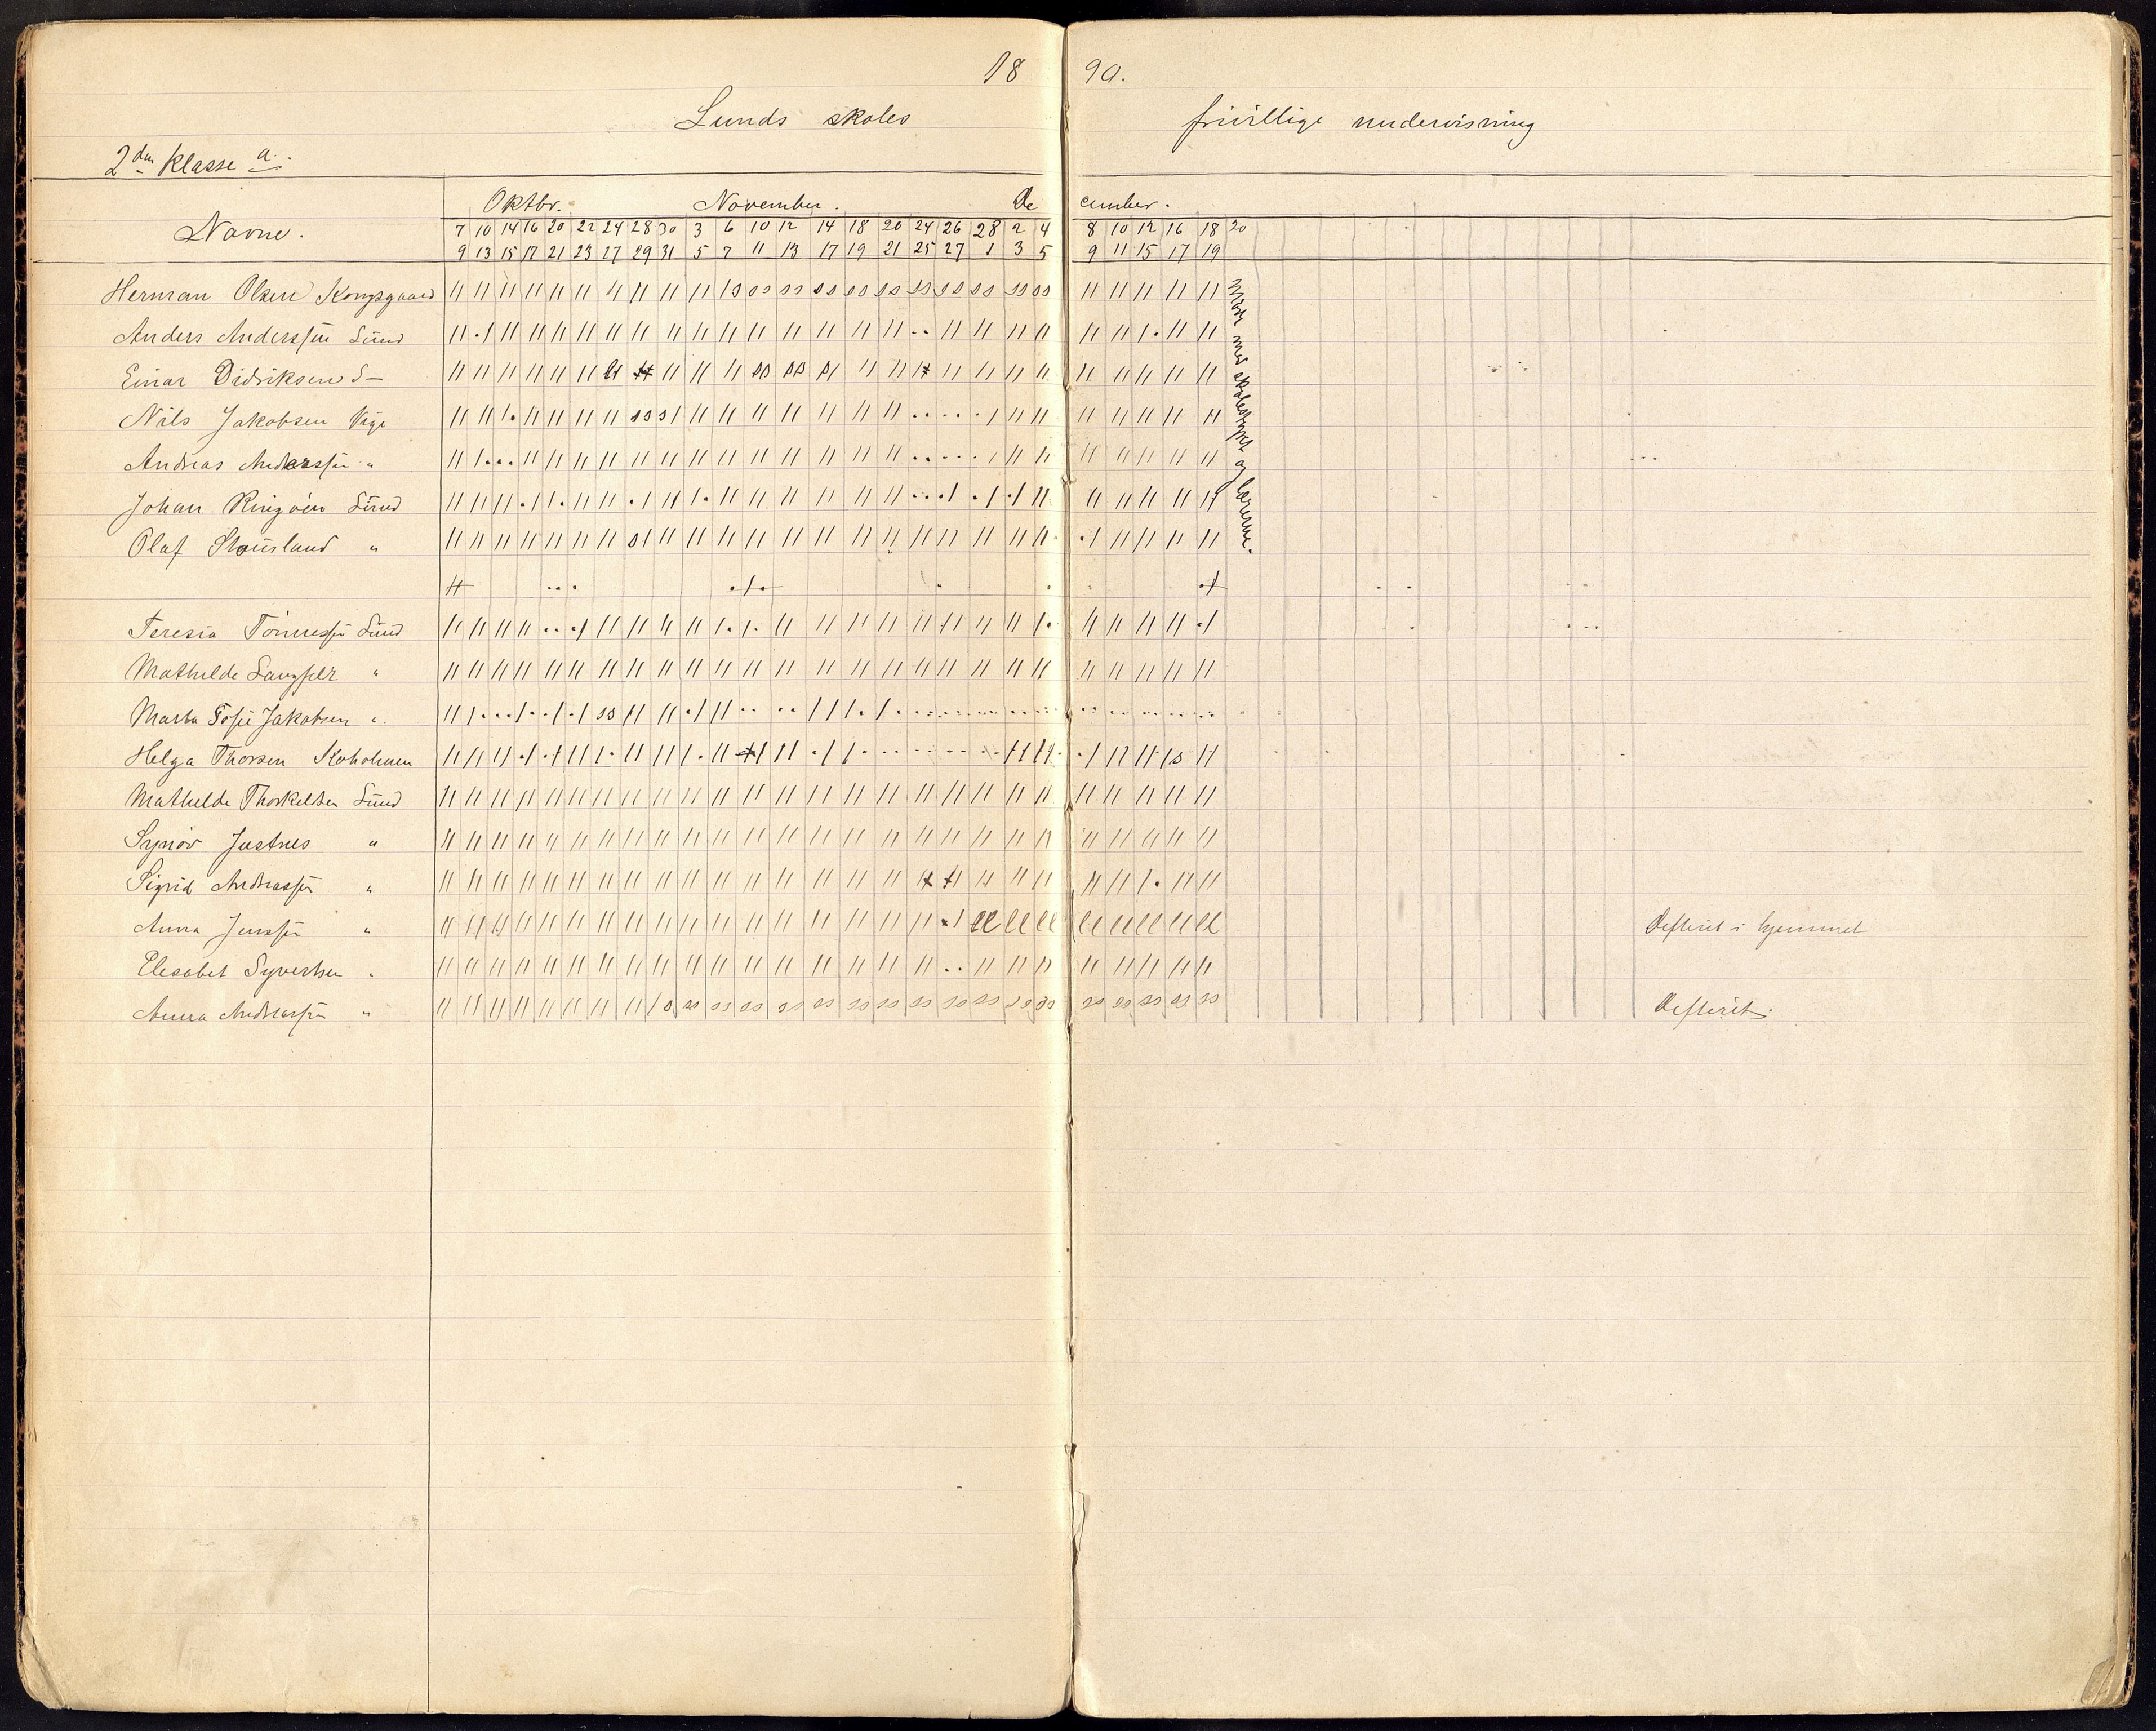 18 90.
Lunds skoles frivillige undervisning
2den klasse a.
Oktbr. November. De cember.
Navne.
7 10 14 16 20 22 24 28 30 3 6 10 12 14 18 20 24 26 28 2 4 8 10 12 16 18 20
9 13 15 17 21 23 27 29 31 5 7 11 13 17 19 21 25 27 1 3 5 9 11 15 17 19
Herman Olsen Kongsgaard
Anders Anderssen Lund
Einar Didriksen
Nils Jakobsen Vige
Andreas Anderssen "
Johan Ringöen Lund
Olaf Stousland "
Møde med skolestyret og lærerne.
Teresia Tönnessen Lund
Mathilde Langfelt "
Marta Sofie Jakobsen "
Helga Thorsen
Mathilde Thorkelsen Lund
Synöv Justnes "
Sigrid Andreassen "
Anna Jenssen " Difterit i hjemmet
Elesabet Syvertsen "
Anna Andreassen " Difterit.